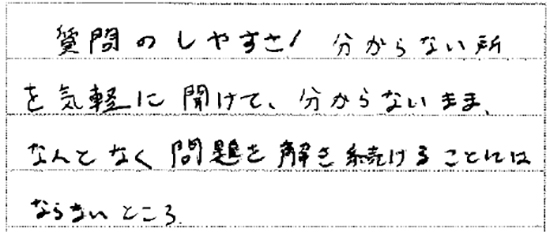 質問のしやすさ! 分からない所
を気軽に聞けて、分からないまま、
なんとなく問題を解き続けることには
ならないところ.